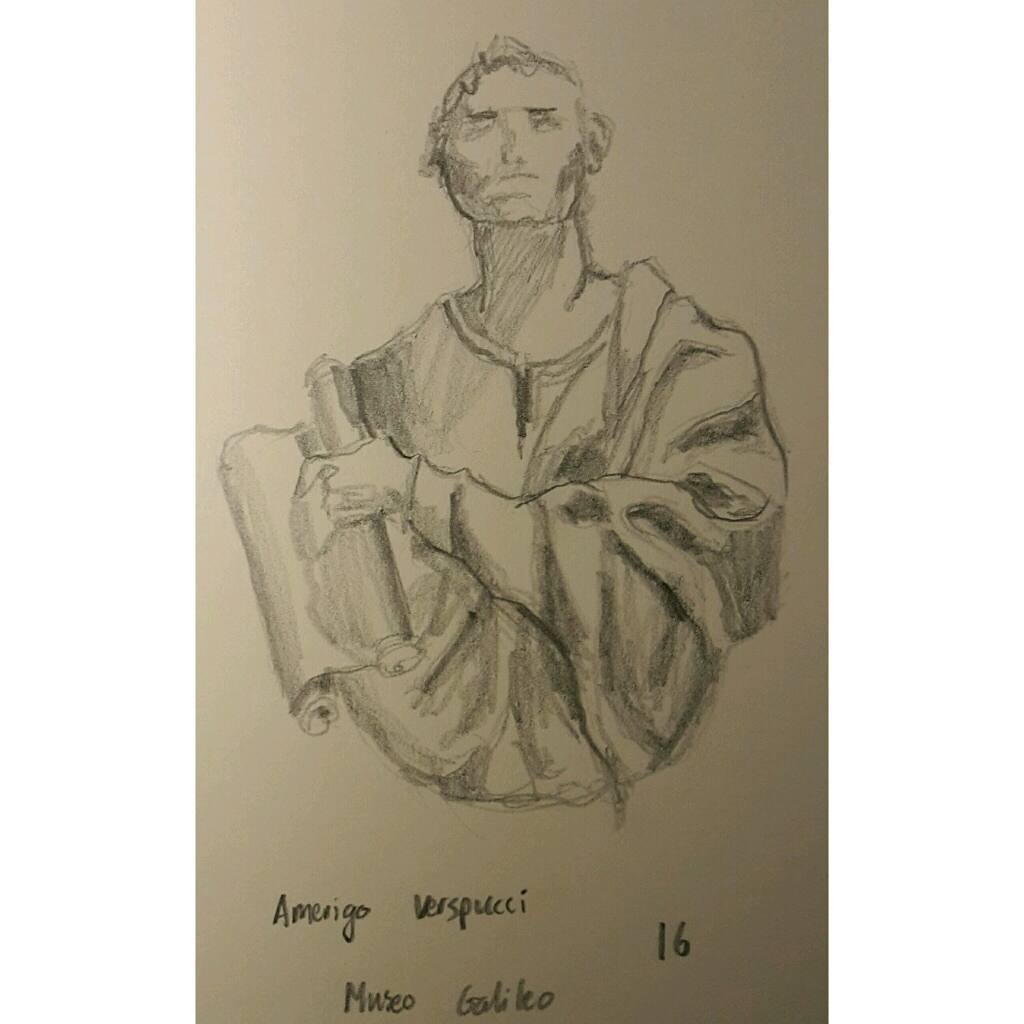 Amerigo Verspucci
16
Museo Galileo